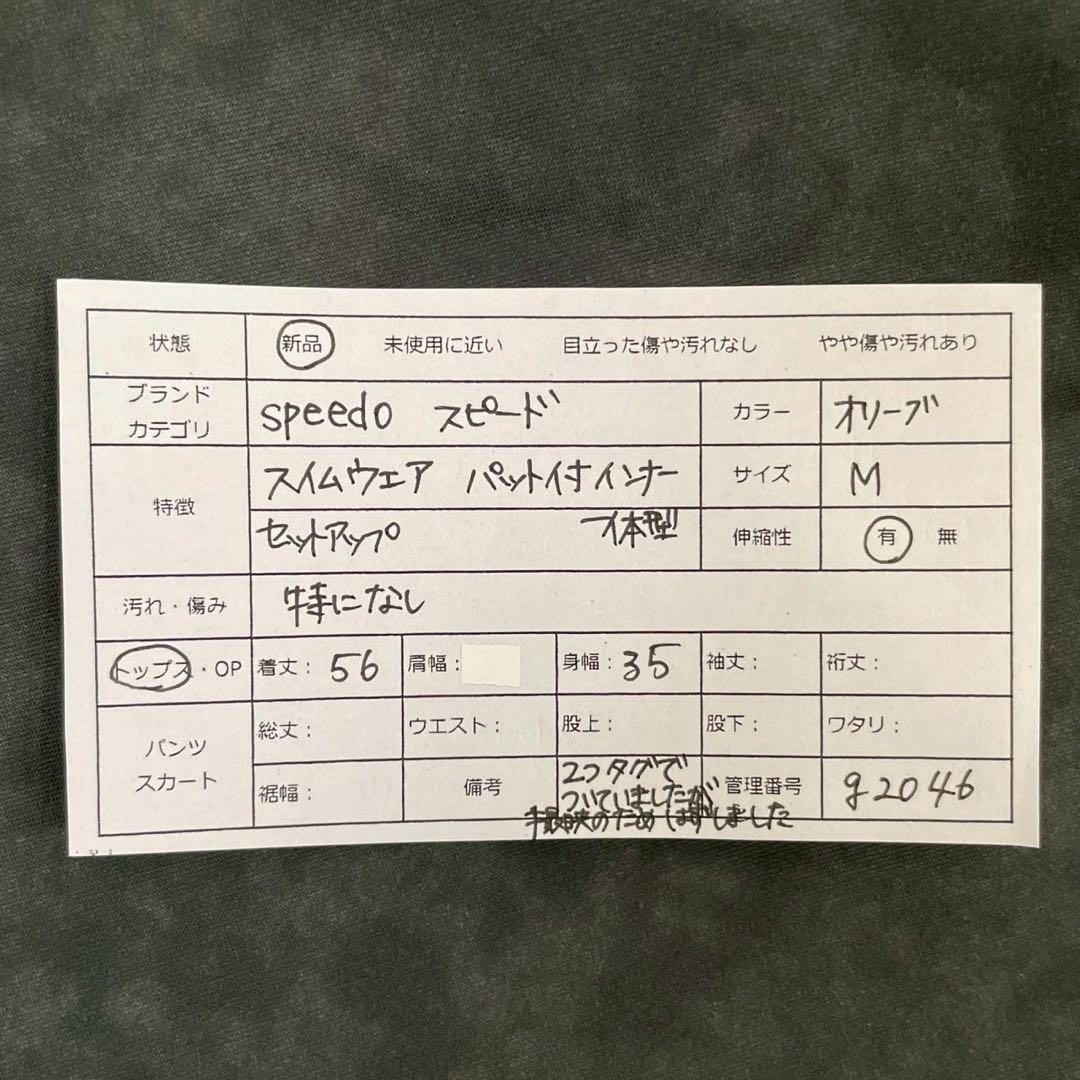 状態 新品 未使用に近い 目立った傷や汚れなし やや傷や汚れあり
ブランド
カテゴリ
speedo スピード
カラー オリーブ
特徴
スイムウェア パット付インナー
サイズ M
セットアップ 一体型
伸縮性 有 無
汚れ・傷み 特になし
トップス・OP 着丈: 56 肩幅: 身幅: 35 袖丈: 裄丈:
パンツ
スカート
総丈: ウエスト: 股上: 股下: ワタリ:
裾幅: 備考
2つタグで
ついていましたが
撮影のためはずしました
管理番号 g2046